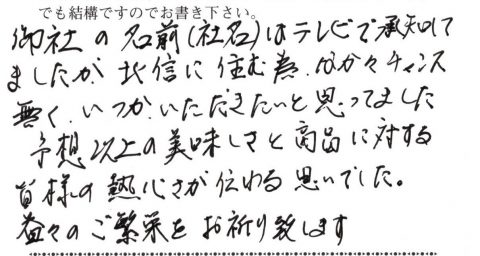 でも結構ですのでお書き下さい。
御社の名前(社名)はテレビで承知して
ましたが 北信に住む為、なか々チャンス
無く、いつかいただきたいと思ってました
予想以上の美味しさと商品に対する
皆様の熱心さが伝わる思いでした。
益々のご繁栄をお祈り致します